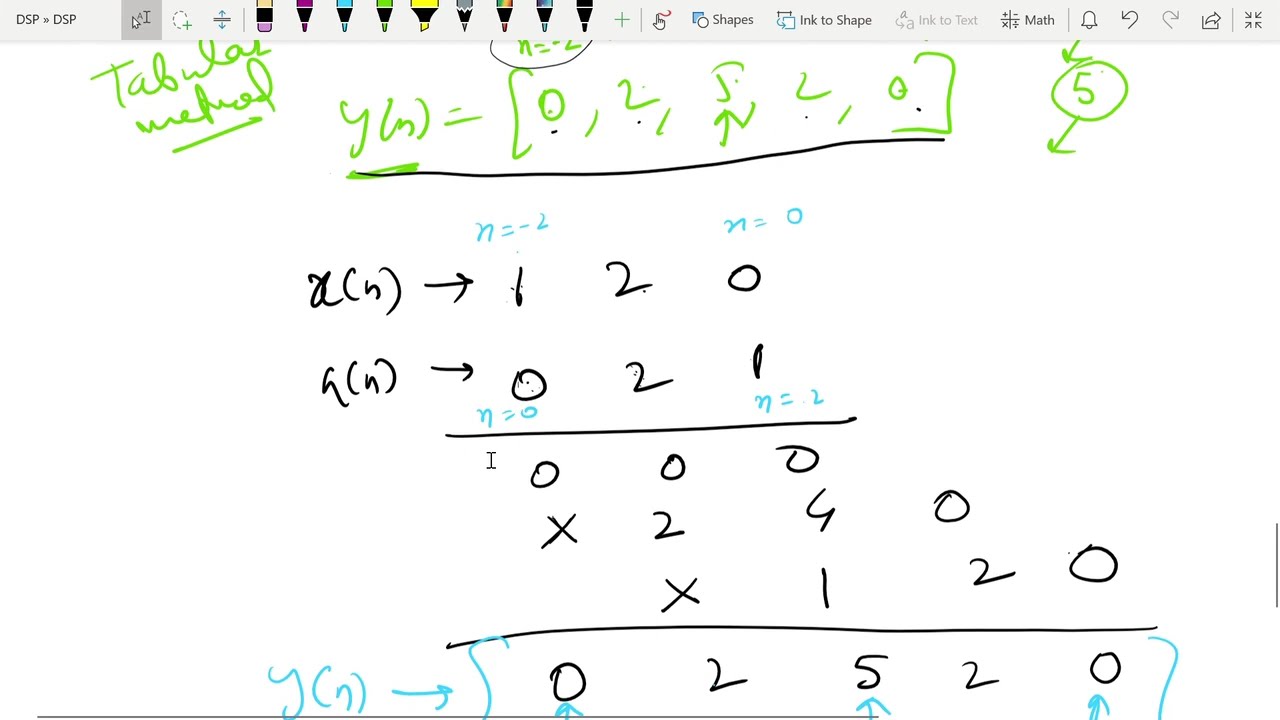 DSP » DSP
Shapes
Ink to Shape
Ink to Text
Math
n=-2
Tabular
method
y(n) = [0, 2, 5, 2, 0]
↑
5
n=-2 n= 0
x(n) → 1 2 0
h(n) → 0 2 1
n=0 n= 2
0 0 0
× 2 4 0
× 1 2 0
y(n) → [ 0 2 5 2 0 ]
↑ ↑ ↑